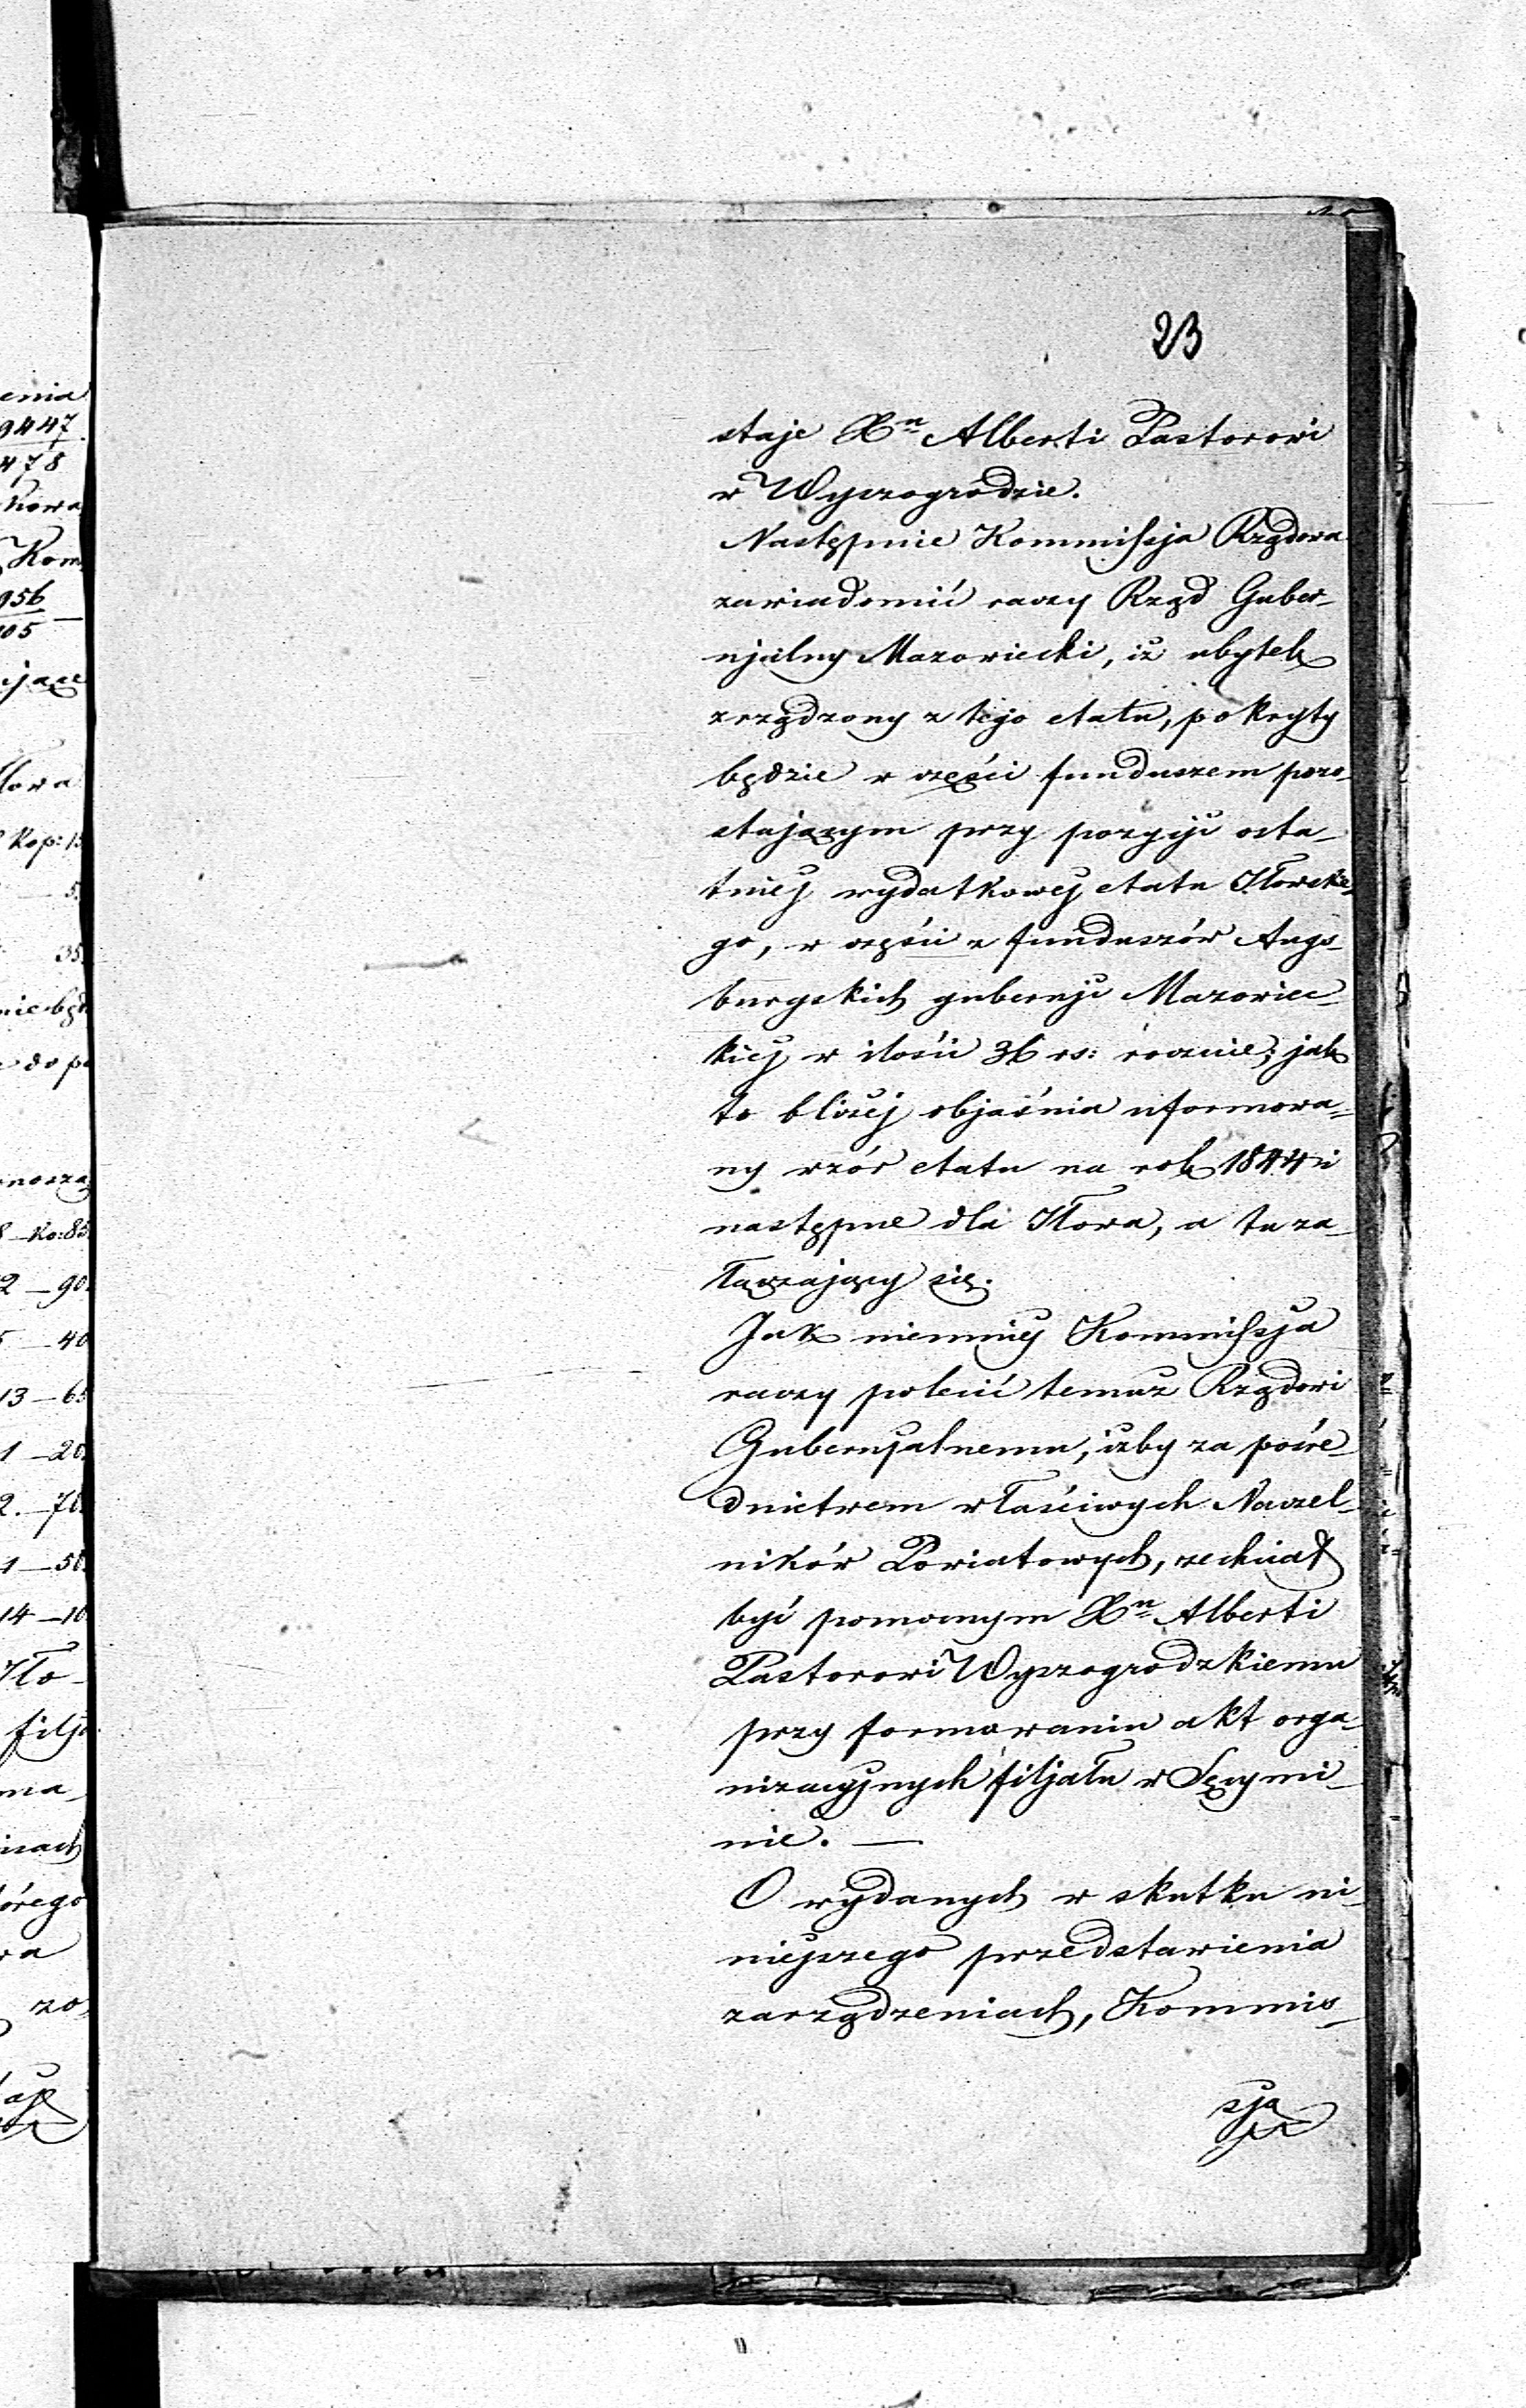 23
staje Xn Alberti Pastorowi
w Wyszogrodzie.
Następnie Kommissja Rządowa
zawiadomić raczy Rząd Guber-
njalny Mazowiecki, iż ubytek
zrządzony z tego etatu, pokryty
będzie w części funduszem pozo-
stającym przy pozycji osta-
tniej wydatkowej etatu Iłowskie-
go, w części z funduszów Augs-
burgskich gubernji Mazowiec-
kiej w ilości 36 rs: rocznie; jak
to bliżej objaśnia uformowa-
ny wzór etatu na rok 1844 i
następne dla Iłowa, a tu za-
łączający się.
Jak niemniej Kommissja
raczy polecić temuż Rządowi
Gubernjalnemu, iżby za pośre-
dnictwem właściwych Naczel-
ników Powiatowych, zechciał
być pomocnym Xn Alberti
Pastorowi Wyszogrodzkiemu
przy formowaniu akt orga-
nizacyjnych filjału w Secymi-
nie. —
O wydanych w skutku ni-
niejszego przedstawienia
zarządzeniach, Kommis-
sja
enia
9447
478
kowa
Kom
956
105
ijące
łowa
Kop: 15
5
35
nie będ
do po
noszą
8 – Ko: 85
2 – 90
5 – 40
13 – 65
1 – 20
2. – 70
1 – 50
14 – 10
Iło-
filja
ma-
órego
wa
zo-